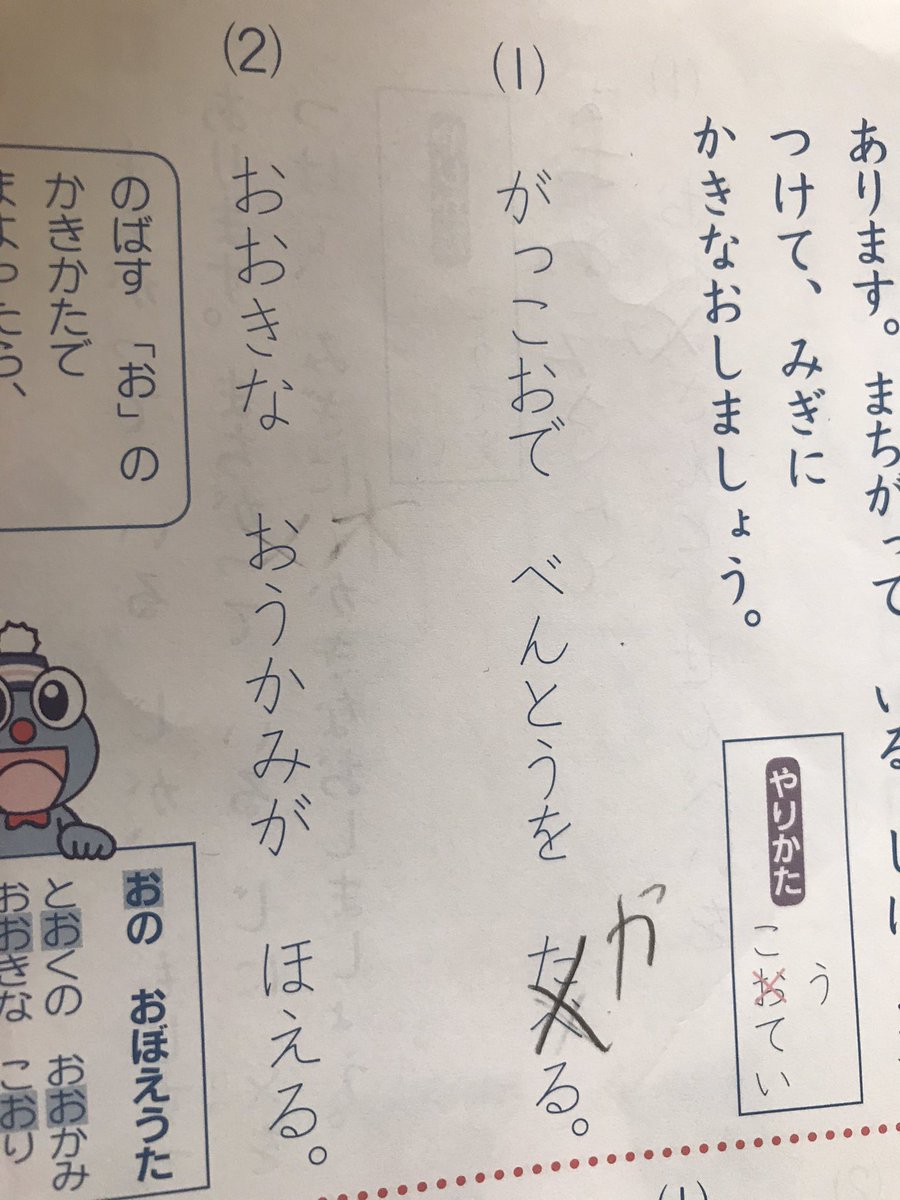 あります。まちがって いる
つけて、みぎに
かきなおしましょう。
やりかた
う
こおてい
(1)
がっこおで べんとうを たべる。
が
(2)
おおきな おうかみが ほえる。
のばす 「お」の
かきかたで
まよったら、
おの おぼえうた
とおくの おおかみ
おおきな こおり
(1)